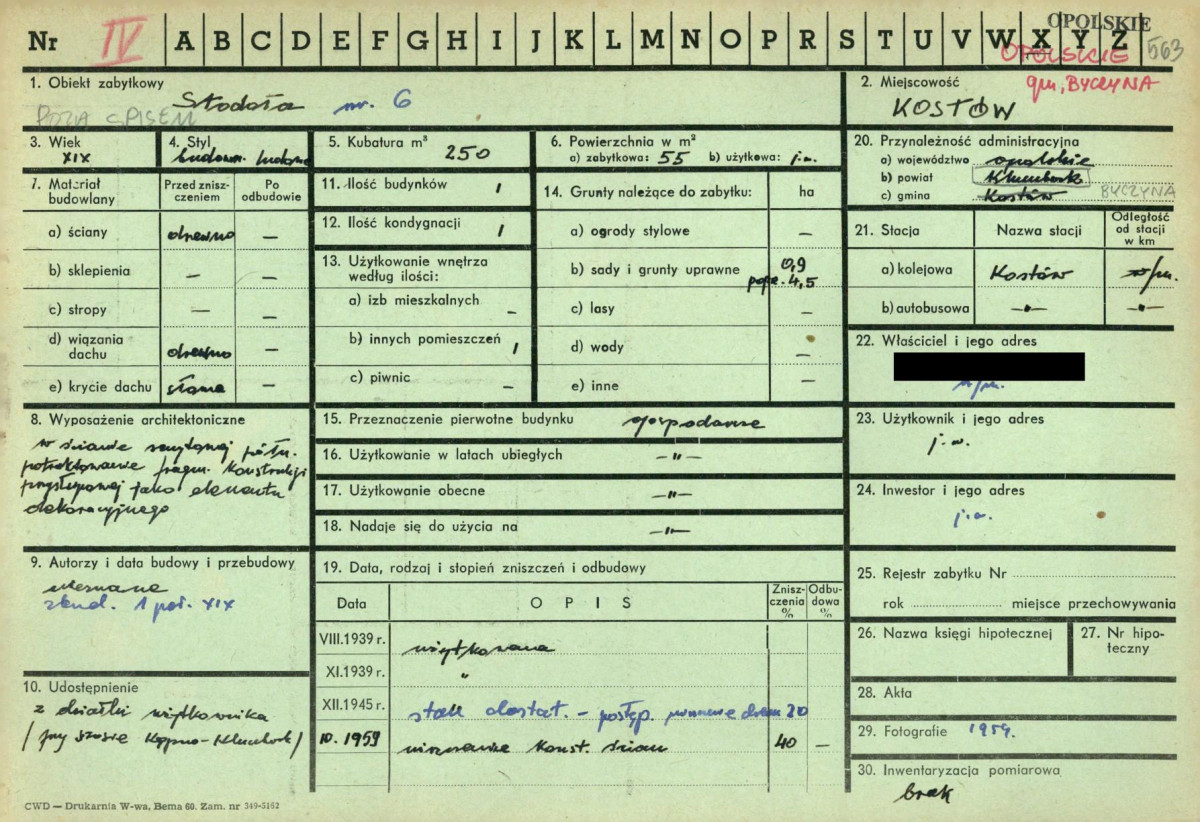 Nr IV A B C D E F G H I J K L M N O P R S T U V W X Y Z OPOLSKIE
OPOLSKIE 563
gm, BYCZYNA
1. Obiekt zabytkowy
Stodoła nr. 6
POZA SPISEM
2. Miejscowość
KOSTÓW
3. Wiek
XIX
4. Styl
budown. ludowe
5. Kubatura m³ 250
6. Powierzchnia w m²
a) zabytkowa: 55 b) użytkowa: j.w.
20. Przynależność administracyjna
a) województwo opolskie
b) powiat Kluczbork
c) gmina Kostów BYCZYNA
7. Materiał budowlany
Przed zniszczeniem
Po odbudowie
a) ściany drewno —
b) sklepienia — —
c) stropy — —
d) wiązania dachu drewno —
e) krycie dachu słoma —
11. Ilość budynków 1
12. Ilość kondygnacji 1
13. Użytkowanie wnętrza według ilości:
a) izb mieszkalnych –
b) innych pomieszczeń 1
c) piwnic –
14. Grunty należące do zabytku: ha
a) ogrody stylowe –
b) sady i grunty uprawne 0,9
4,5
c) lasy –
d) wody –
e) inne –
21. Stacja Nazwa stacji Odległość od stacji w km
a) kolejowa Kostów w/m.
b) autobusowa —"— —"—
22. Właściciel i jego adres
w/m.
8. Wyposażenie architektoniczne
w ścianie szczytowej półn.
potraktowanie fragm. konstrukcji
przysłupowej jako elementu
dekoracyjnego
15. Przeznaczenie pierwotne budynku gospodarcze
16. Użytkowanie w latach ubiegłych —"—
17. Użytkowanie obecne —"—
18. Nadaje się do użycia na —"—
23. Użytkownik i jego adres
j.w.
24. Inwestor i jego adres
j.w.
9. Autorzy i data budowy i przebudowy
nieznane
zbud. 1 poł. XIX
19. Data, rodzaj i stopień zniszczeń i odbudowy
Data OPIS Zniszczenia % Odbudowa %
VIII.1939 r. użytkowana
XI.1939 r. "
XII.1945 r. stan dostat. – postęp. 20
10. 1959 niszczenie konst. ścian 40 –
25. Rejestr zabytku Nr
rok miejsce przechowywania
26. Nazwa księgi hipotecznej
27. Nr hipoteczny
28. Akta
29. Fotografie 1959.
30. Inwentaryzacja pomiarowa
brak
10. Udostępnienie
z działki użytkownika
/przy szosie Kępno-Kluczbork/
CWD — Drukarnia W-wa, Bema 60. Zam. nr 349-5162